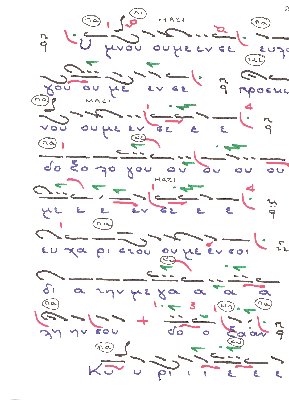 ΜΑΖΙ
Υ μνου ου με εν σε ευλο
γου ου με εν σε προσκυ
ΜΑΖΙ
νου ου με εν σε ε ε
δο ξο λο γου ου ου ου ου
ΜΑΖΙ
με ε ε εν σε ε ε
ευ χα ρι στου ου με εν σοι
δι α την με γα α α α
λη ην σου + δο ο ξα αν
Κυ υ ρι ι ι ε ε ε